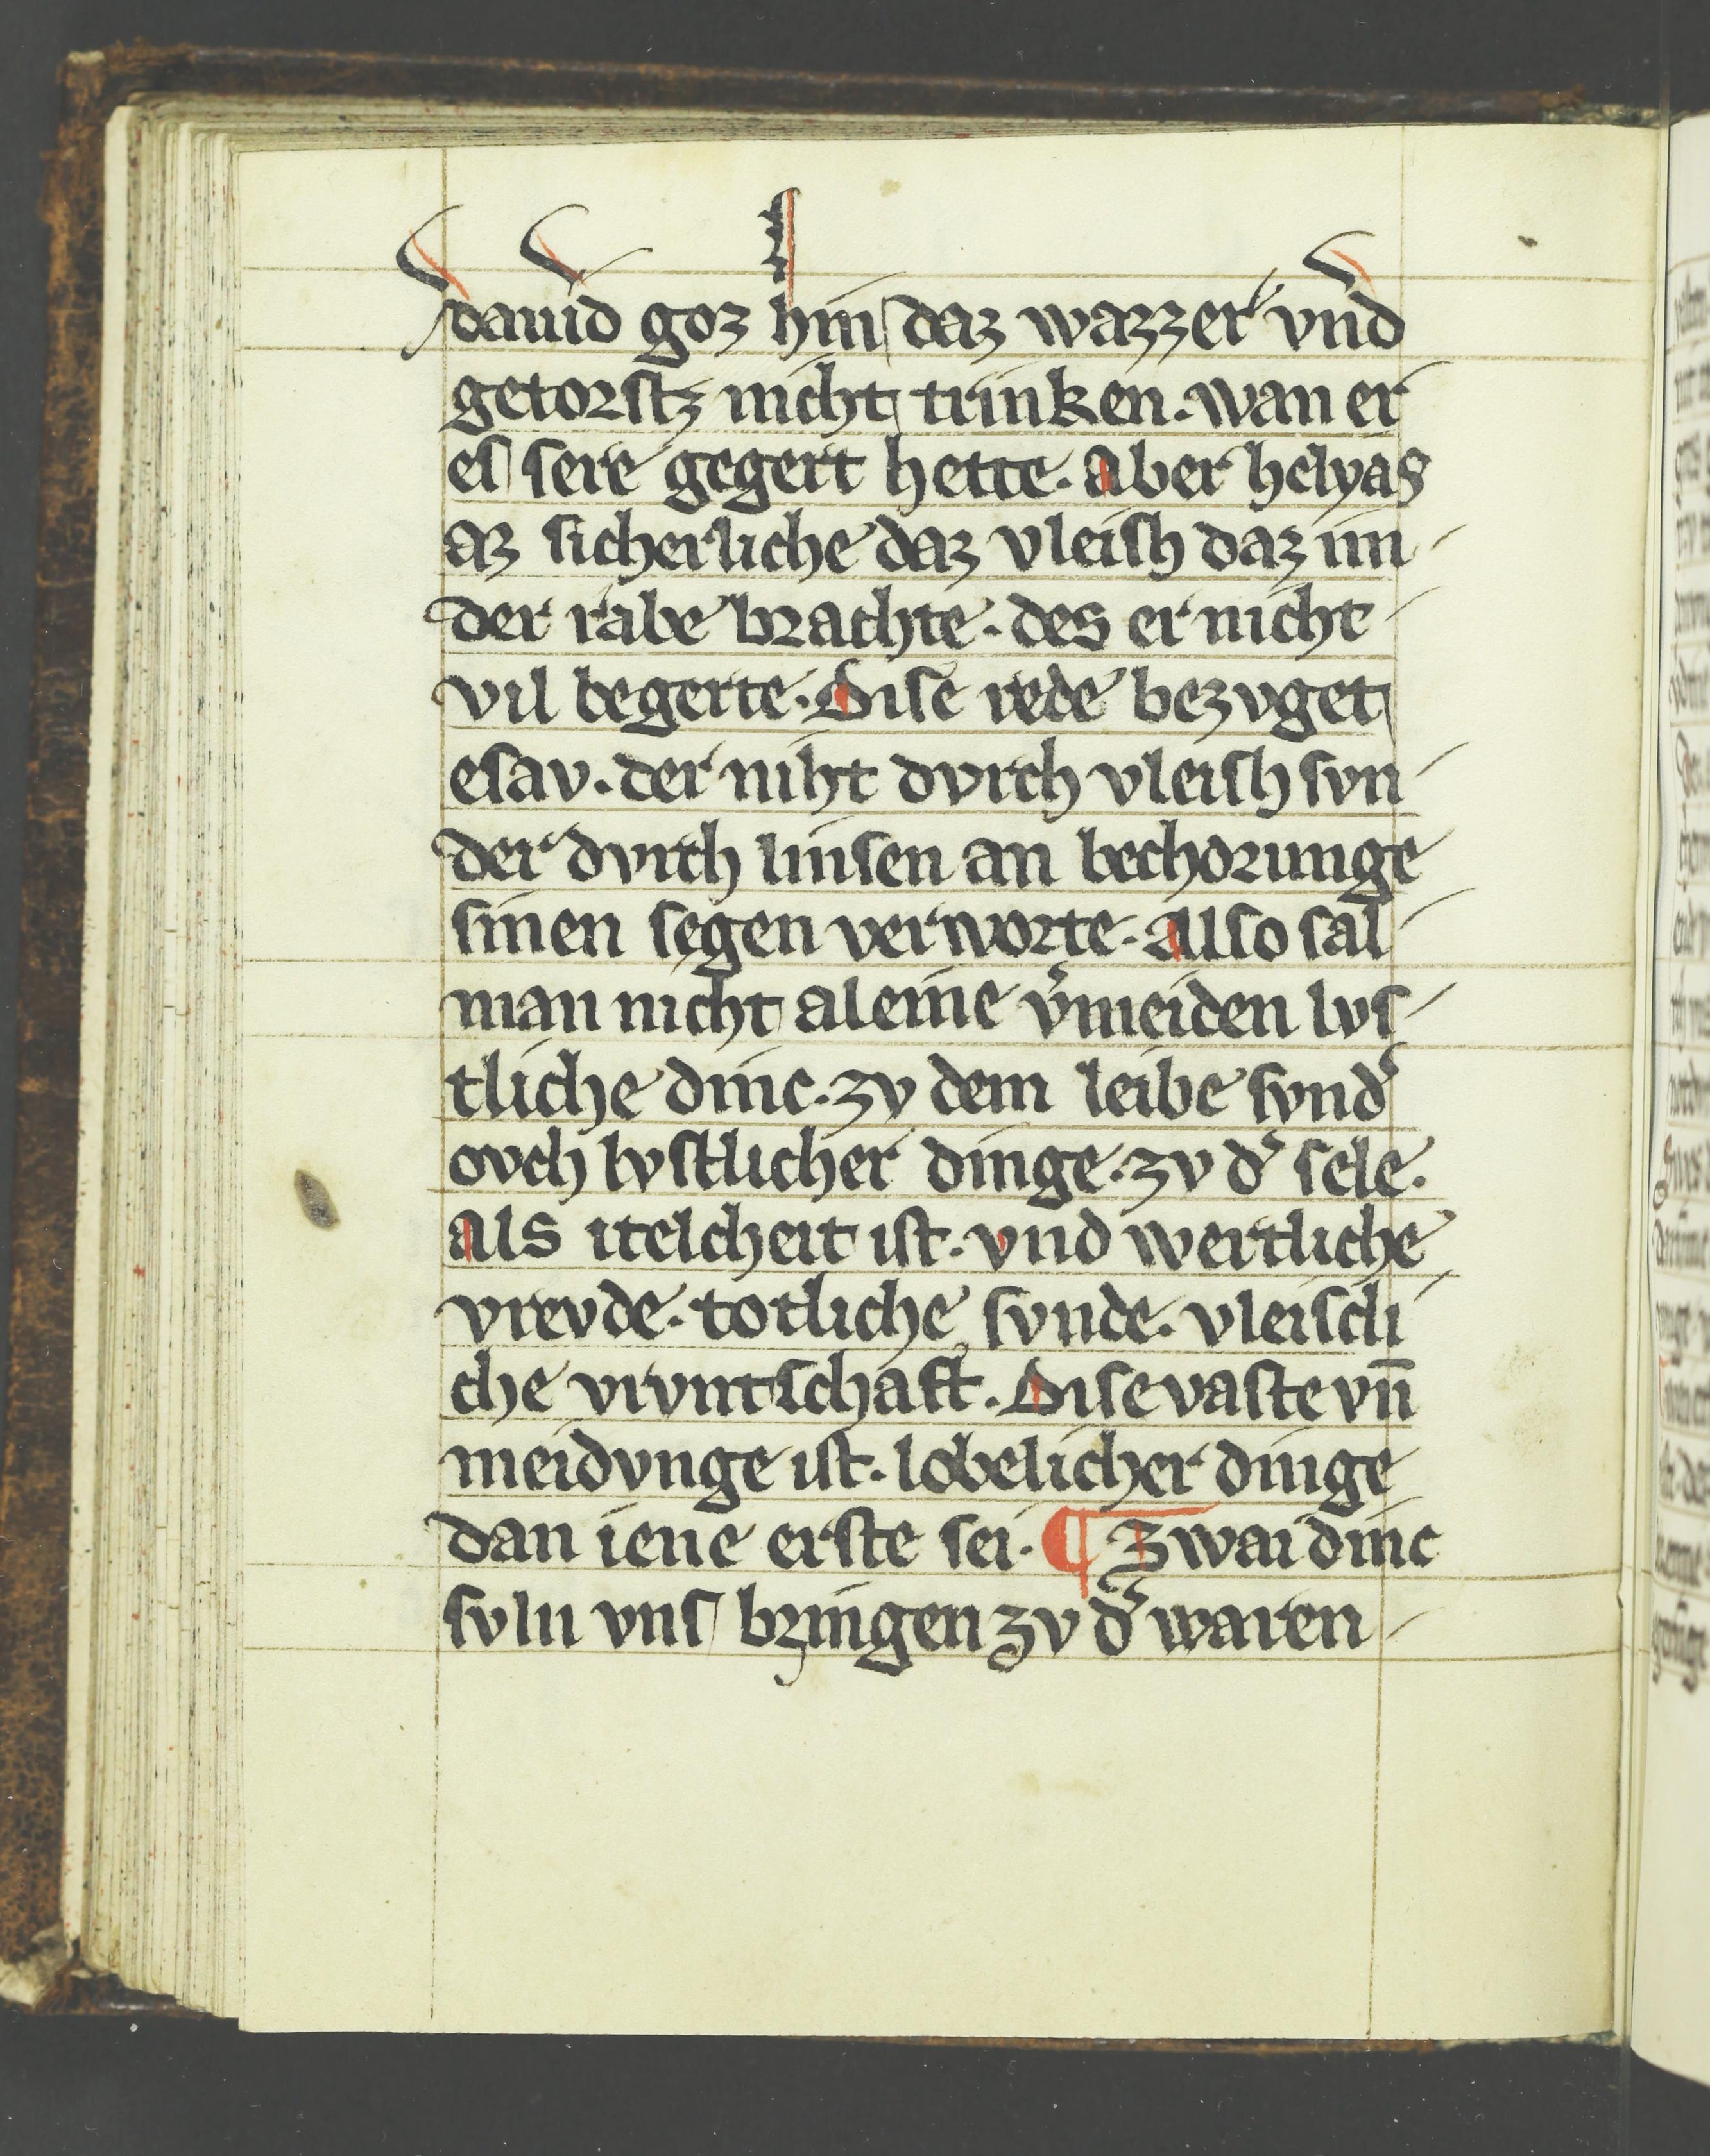 dauid goz hin daz wazzer vnd
getorstz nicht trinken. wan er
es sere gegert hette. Aber helyas
az sicherliche daz vleish daz im
der rabe brachte. des er nicht
vil begerte. Dise rede bezvget
esav. der niht dvrch vleish svn
der dvrch linsen an bechorunge
sinen segen verworte. Also sal
man nicht aleine v͛meiden lvs
tliche dinc. zv dem leibe svnd͛
ovch lvstlicher dinge. zv d͛ sele.
Als itelcheit ist. vnd wertliche
vrevde. totliche svnde. vleischli
che vrvntschaft. Dise vaste vn̄
meidvnge ist. lobelicher dinge
dan iene erste sei. ¶ Zwai dinc
svln vns bringen zv d͛ waren